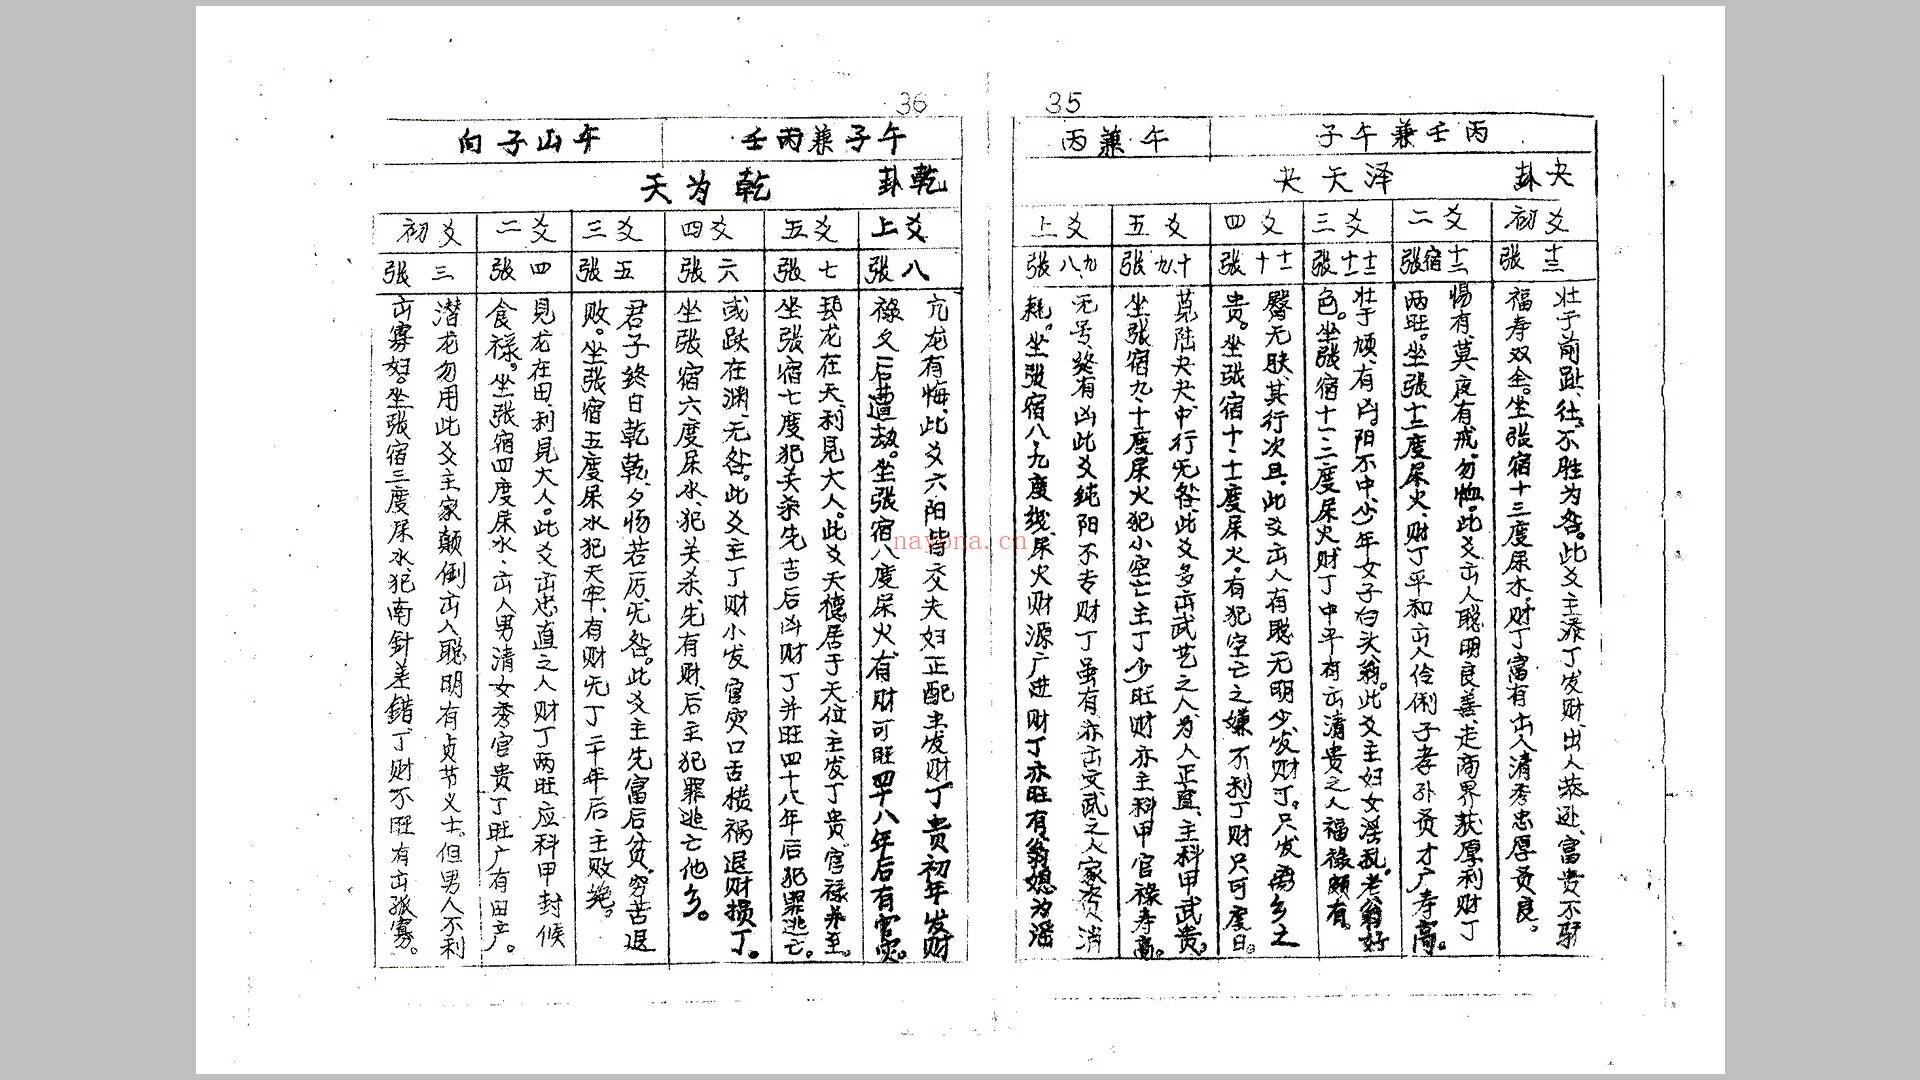 35
丙壬兼午子
午兼丙
夬卦
泽天夬
初爻
张十三
壮于前趾、往、不胜为咎。此爻主添丁发财、出人恭逊、富贵不骄
福寿双全。坐张宿十三度尿水、财丁富有、出人清秀忠厚贡良。
二爻
张宿十二十三
惕有、莫、夜有戒。勿恤。此爻出人聪明良善、走商界获厚利财丁
两旺。坐张十二十三度尿火、财丁平和出人伶俐子孝孙贡才广寿高。
三爻
张十一十二
壮于頄、有凶。阳不中、少年女子白头翁。此爻主妇女淫乱。老翁好
色。坐张宿十一十二度尿火财丁中平有出清贵之人福禄颇有。
四爻
张十十一
臀无肤、其行次且、此爻出人有聪无明少发财丁。只发离乡之
贵。坐张宿十、十一度尿火。有犯空亡之嫌不利丁财只可度日。
五爻
张九、十
苋陆夬夬、中行无咎、此爻多出武艺之人、为人正直、主科甲武贵。
坐张宿九、十度尿火犯小空亡主丁少旺财亦主科甲官禄寿高。
上爻
张八九
无号、终有凶此爻纯阳不专财丁虽有亦出文武之人家资消
耗。坐张宿八、九度线、尿火财源广进财丁亦旺有翁媳为淫
36
午子兼丙壬
午山子向
乾卦
乾为天
上爻
张八
亢龙有悔、此爻六阳皆交夫妇正配主发财。丁贵初年发财
禄久后遭劫。坐张宿八度尿火、有财可旺四十八年后有官灾。
五爻
张七
飞龙在天、利见大人。此爻天德居于天位主发丁贵、官禄并至。
坐张宿七度犯关杀先吉后凶财丁并旺四十八年后犯罪逃亡。
四爻
张六
或跃在渊、无咎。此爻主丁财小发官灾口舌横祸退财损丁。
坐张宿六度尿水、犯关杀、先有财、后主犯罪逃亡他乡。
三爻
张五
君子终日乾乾、夕惕若厉、无咎。此爻主先富后贫、穷苦退
败。坐张宿五度尿水犯天牢、有财无丁二十年后主败绝。
二爻
张四
见龙在田、利见大人。此爻出忠直之人财丁两旺应科甲封候
食禄。坐张宿四度尿水、出人男清女秀官贵丁旺广有田产。
初爻
张三
潜龙勿用此爻主家颠倒出入聪明有贞节义士。但男人不利
出寡妇。坐张宿三度尿水犯南針差錯、丁财不旺有出孤寡。
nayona.cn